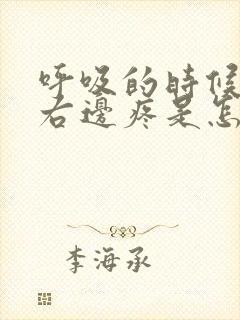 呼吸的時候
右邊疼是怎
李海承